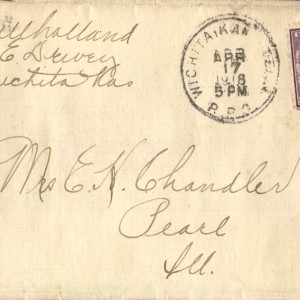 Mulholland
E Drivey
Wichita Kas
WICHITA, KAN.
APR
17
1918
5 PM
R.P.O.
Mrs E. H. Chandler
Pearl
Ill.